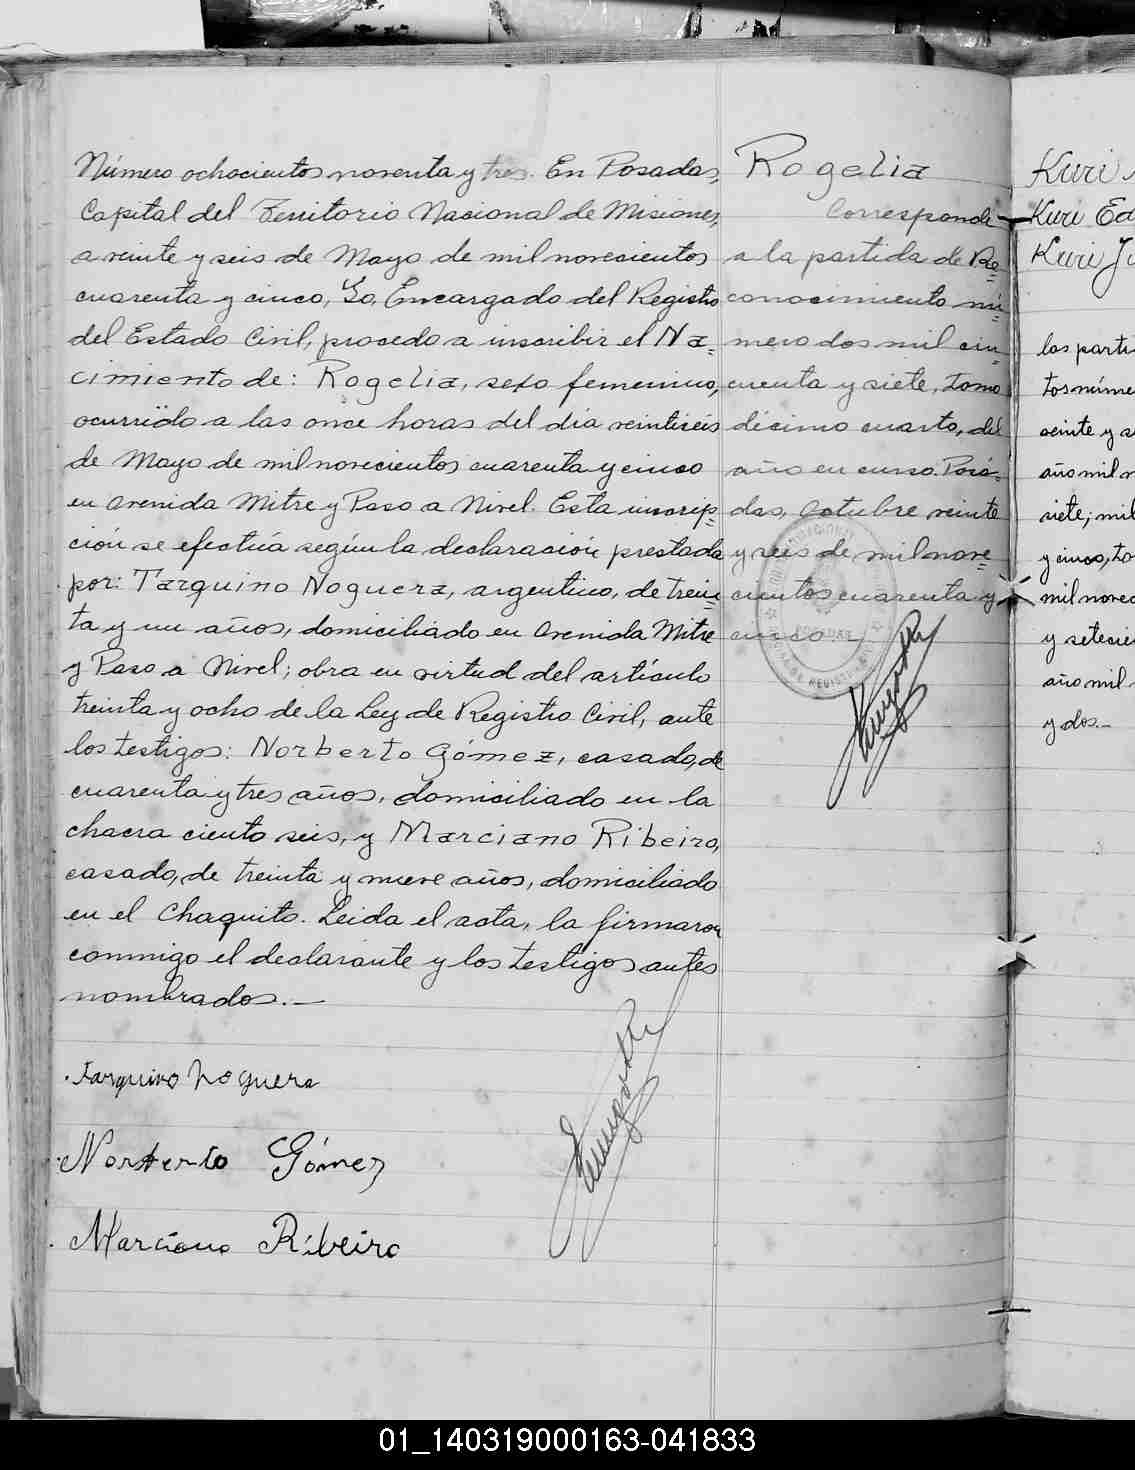 Número ochocientos noventa y tres. En Posadas,
Capital del Territorio Nacional de Misiones,
a veinte y seis de Mayo de mil novecientos
cuarenta y cinco, Yo, Encargado del Registro
del Estado Civil, procedo a inscribir el Na=
cimiento de: Rogelia, sexo femenino,
ocurrido a las once horas del día veintiseis
de Mayo de mil novecientos cuarenta y cinco
en Avenida Mitre y Paso a Nivel. Esta inscrip=
ción se efectúa según la declaración prestada
por: Tarquino Noguera, argentino, de trein=
ta y un años, domiciliado en Avenida Mitre
y Paso a Nivel; obra en virtud del artículo
treinta y ocho de la Ley de Registro Civil, ante
los testigos: Norberto Gómez, casado, de
cuarenta y tres años, domiciliado en la
chacra ciento seis, y Marciano Ribeiro,
casado, de treinta y nueve años, domiciliado
en el Chaquito. Leida el acta, la firmaron
conmigo el declarante y los testigos antes
nombrados.—
Tarquino Noguera
Norberto Gómez
Marciano Ribeiro
Rogelia
Corresponde
a la partida de Re=
conocimiento nú=
mero dos mil cin=
cuenta y siete, tomo
décimo cuarto, del
año en curso. Posa=
das, Octubre veinte
y seis de mil nove=
cientos cuarenta y
cinco
POSADAS
Kuri
Kuri Ed
Kuri Ju
las parti
tos núme
veinte y
año mil n
siete; mil
y cinco, to
mil novec
y setecie
año mil
y dos.—
01_140319000163-041833